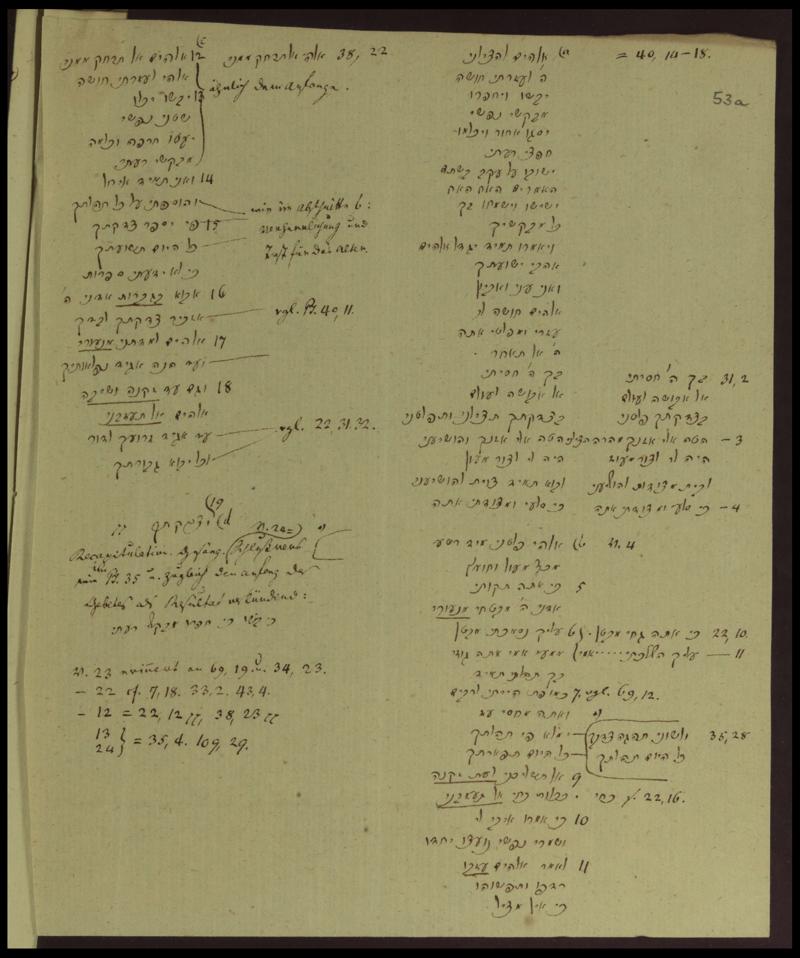 53a
אלהים להצילני = 40, 14-18.
ה' לעזרתי חושה
יבשו ויחפרו
מבקשי נפשי
יסגו אחור ויכלמו
חפצי רעתי
ישובו על עקב בשתם
האמרים האח האח
ישישו וישמחו בך
כל מבקשיך
ויאמרו תמיד יגדל אלהים
אהבי ישועתך
ואני עני ואביון
אלהים חושה לי
עזרי ומפלטי אתה
ה' אל תאחר
בך ה' חסיתי בך ה' חסיתי 31, 2
אל אבושה לעולם אל אבושה לעולם
בצדקתך תצילני ותפלטני בצדקתך פלטני
הטה אלי אזנך והושיעני הטה אלי אזנך מהרה הצילני 3 —
היה לי לצור מעון היה לי לצור מעוז
לבוא תמיד צוית להושיעני לבית מצודות להושיעני
כי סלעי ומצודתי אתה כי סלעי ומצודתי אתה 4 —
אלהי פלטני מיד רשע 4
מכף מעול וחומץ
5 כי אתה תקותי
אדני ה' מבטחי מנעורי
6 עליך נסמכתי מבטן כי אתה גחי מבטן 22, 10.
ממעי אמי אתה גוזי עליך השלכתי 11 —
בך תהלתי תמיד
7 כמופת הייתי לרבים 69, 12.
ואתה מחסי עז
ימלא פי תהלתך ולשוני תהגה צדקך 35, 28
כל היום תפארתך כל היום תהלתך
9 אל תשליכני לעת זקנה
ככלות כחי אל תעזבני כחי cf. 22, 16.
10 כי אמרו אויבי לי
ושמרי נפשי נועצו יחדו
11 לאמר אלהים עזבו
רדפו ותפשוהו
כי אין מציל
12 אלהים אל תרחק ממני אלהי אל תרחק ממני 38, 22
אלהי לעזרתי חושה ähnlich dem Anfange.
13 יבשו יכלו
שטני נפשי
יעטו חרפה וכלמה
מבקשי רעתי
14 ואני תמיד איחל
והוספתי על כל תהלתך
15 פי יספר צדקתך
כל היום תשועתך
כי לא ידעתי ספרות
16 אבוא בגברות אדני ה'
אזכיר צדקתך לבדך vgl. Ps. 40, 11.
17 אלהים למדתני מנעורי
ועד הנה אגיד נפלאותיך
18 וגם עד זקנה ושיבה
אלהים אל תעזבני
עד אגיד זרועך לדור vgl. 22, 31. 32.
לכל יבוא גבורתך
19 וצדקתך
V. 24
Recapitulation
Ps. 35 u. zugleich den Anfang des
Gebetes als Resultat verkündend:
כי בשו כי חפרו מבקשי רעתי
V. 23 erinnert an 69, 19 u. 34, 23.
— 22 cf. 7, 18. 33, 2. 43, 4.
— 12 = 22, 12 38, 23
13
24 } = 35, 4. 109, 29.